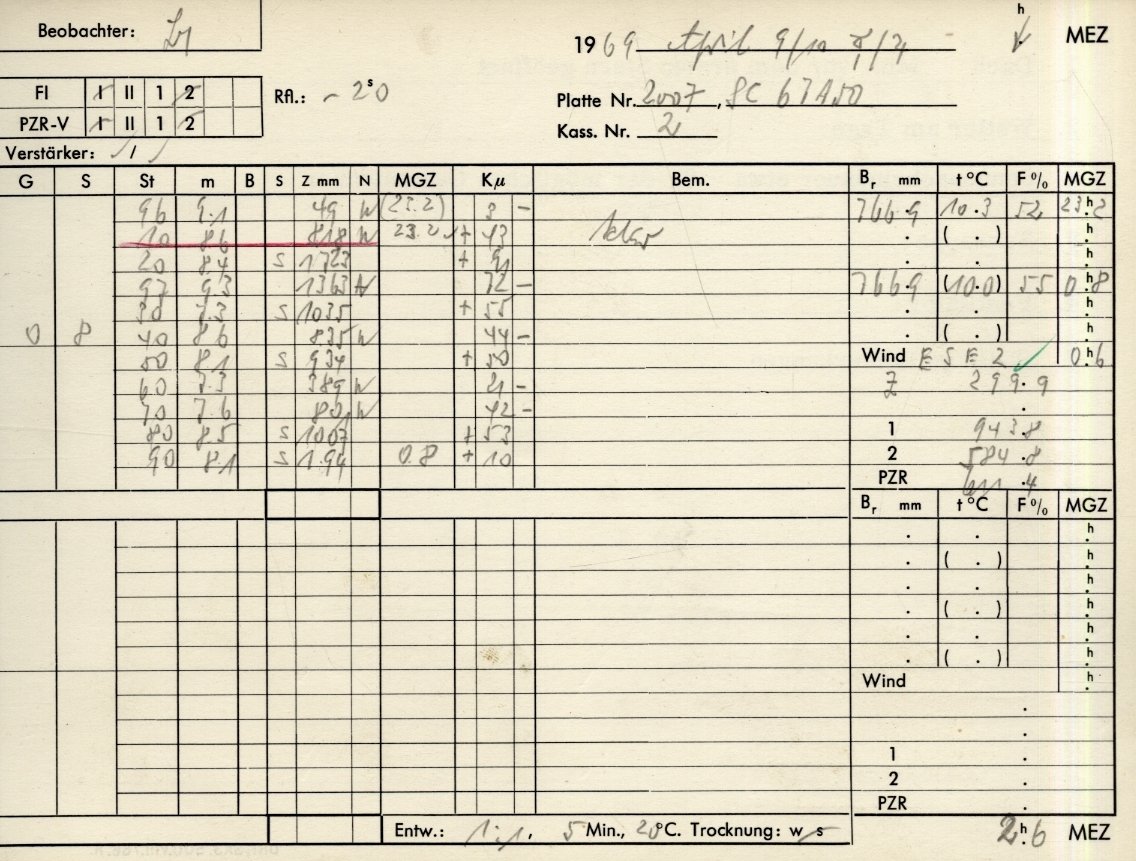 Beobachter:
1969 April 9/10 h MEZ
FI I II 1 2 Rfl.: – 2ˢ0
Platte Nr. 2007, SC 67A50
PZR-V I II 1 2
Kass. Nr. 2
Verstärker: /
G S St m B S Z mm N MGZ Kμ Bem. Bᵣ mm t °C F % MGZ
96 9.1 49 N (23.2) 3 – 766.9 10.3 52 23ʰ.2
10 8.6 818 N 23.2 + 43 . ( . ) h
20 8.4 S 1723 + 91 . h
97 9.3 1363 N 72 – 766.9 (10.0) 55 0ʰ.8
30 7.3 S 1035 + 55 . h
0 8 40 8.6 835 N 44 – . ( . ) h
50 8.1 S 934 + 50 Wind ESE 2 0ʰ.6
60 7.3 389 N 21 – Z 299.9
70 7.6 801 N 42 – .
80 8.5 S 1007 + 53 1 943.8
90 8.1 S 194 0.8 + 10 2 584.8
PZR 611.4
Bᵣ mm t °C F % MGZ
. . h
. ( . ) h
. . h
. ( . ) h
. . h
. ( . ) h
Wind h
.
.
1 .
2 .
PZR .
Entw.: 1:1, 5 Min., 20°C. Trocknung: w s 2ʰ.6 MEZ